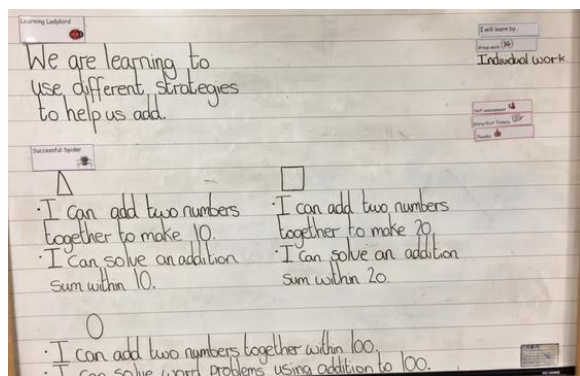 Learning Ladybird
We are learning to
use different strategies
to help us add.
I will learn by..
Group work
Individual work
Self assessment
Thumbs
Successful Spider
· I can add two numbers
together to make 10.
· I can solve an addition
sum within 10.
· I can add two numbers
together to make 20.
· I can solve an addition
sum within 20.
· I can add two numbers together within 100.
· I can solve word problems using addition to 100.